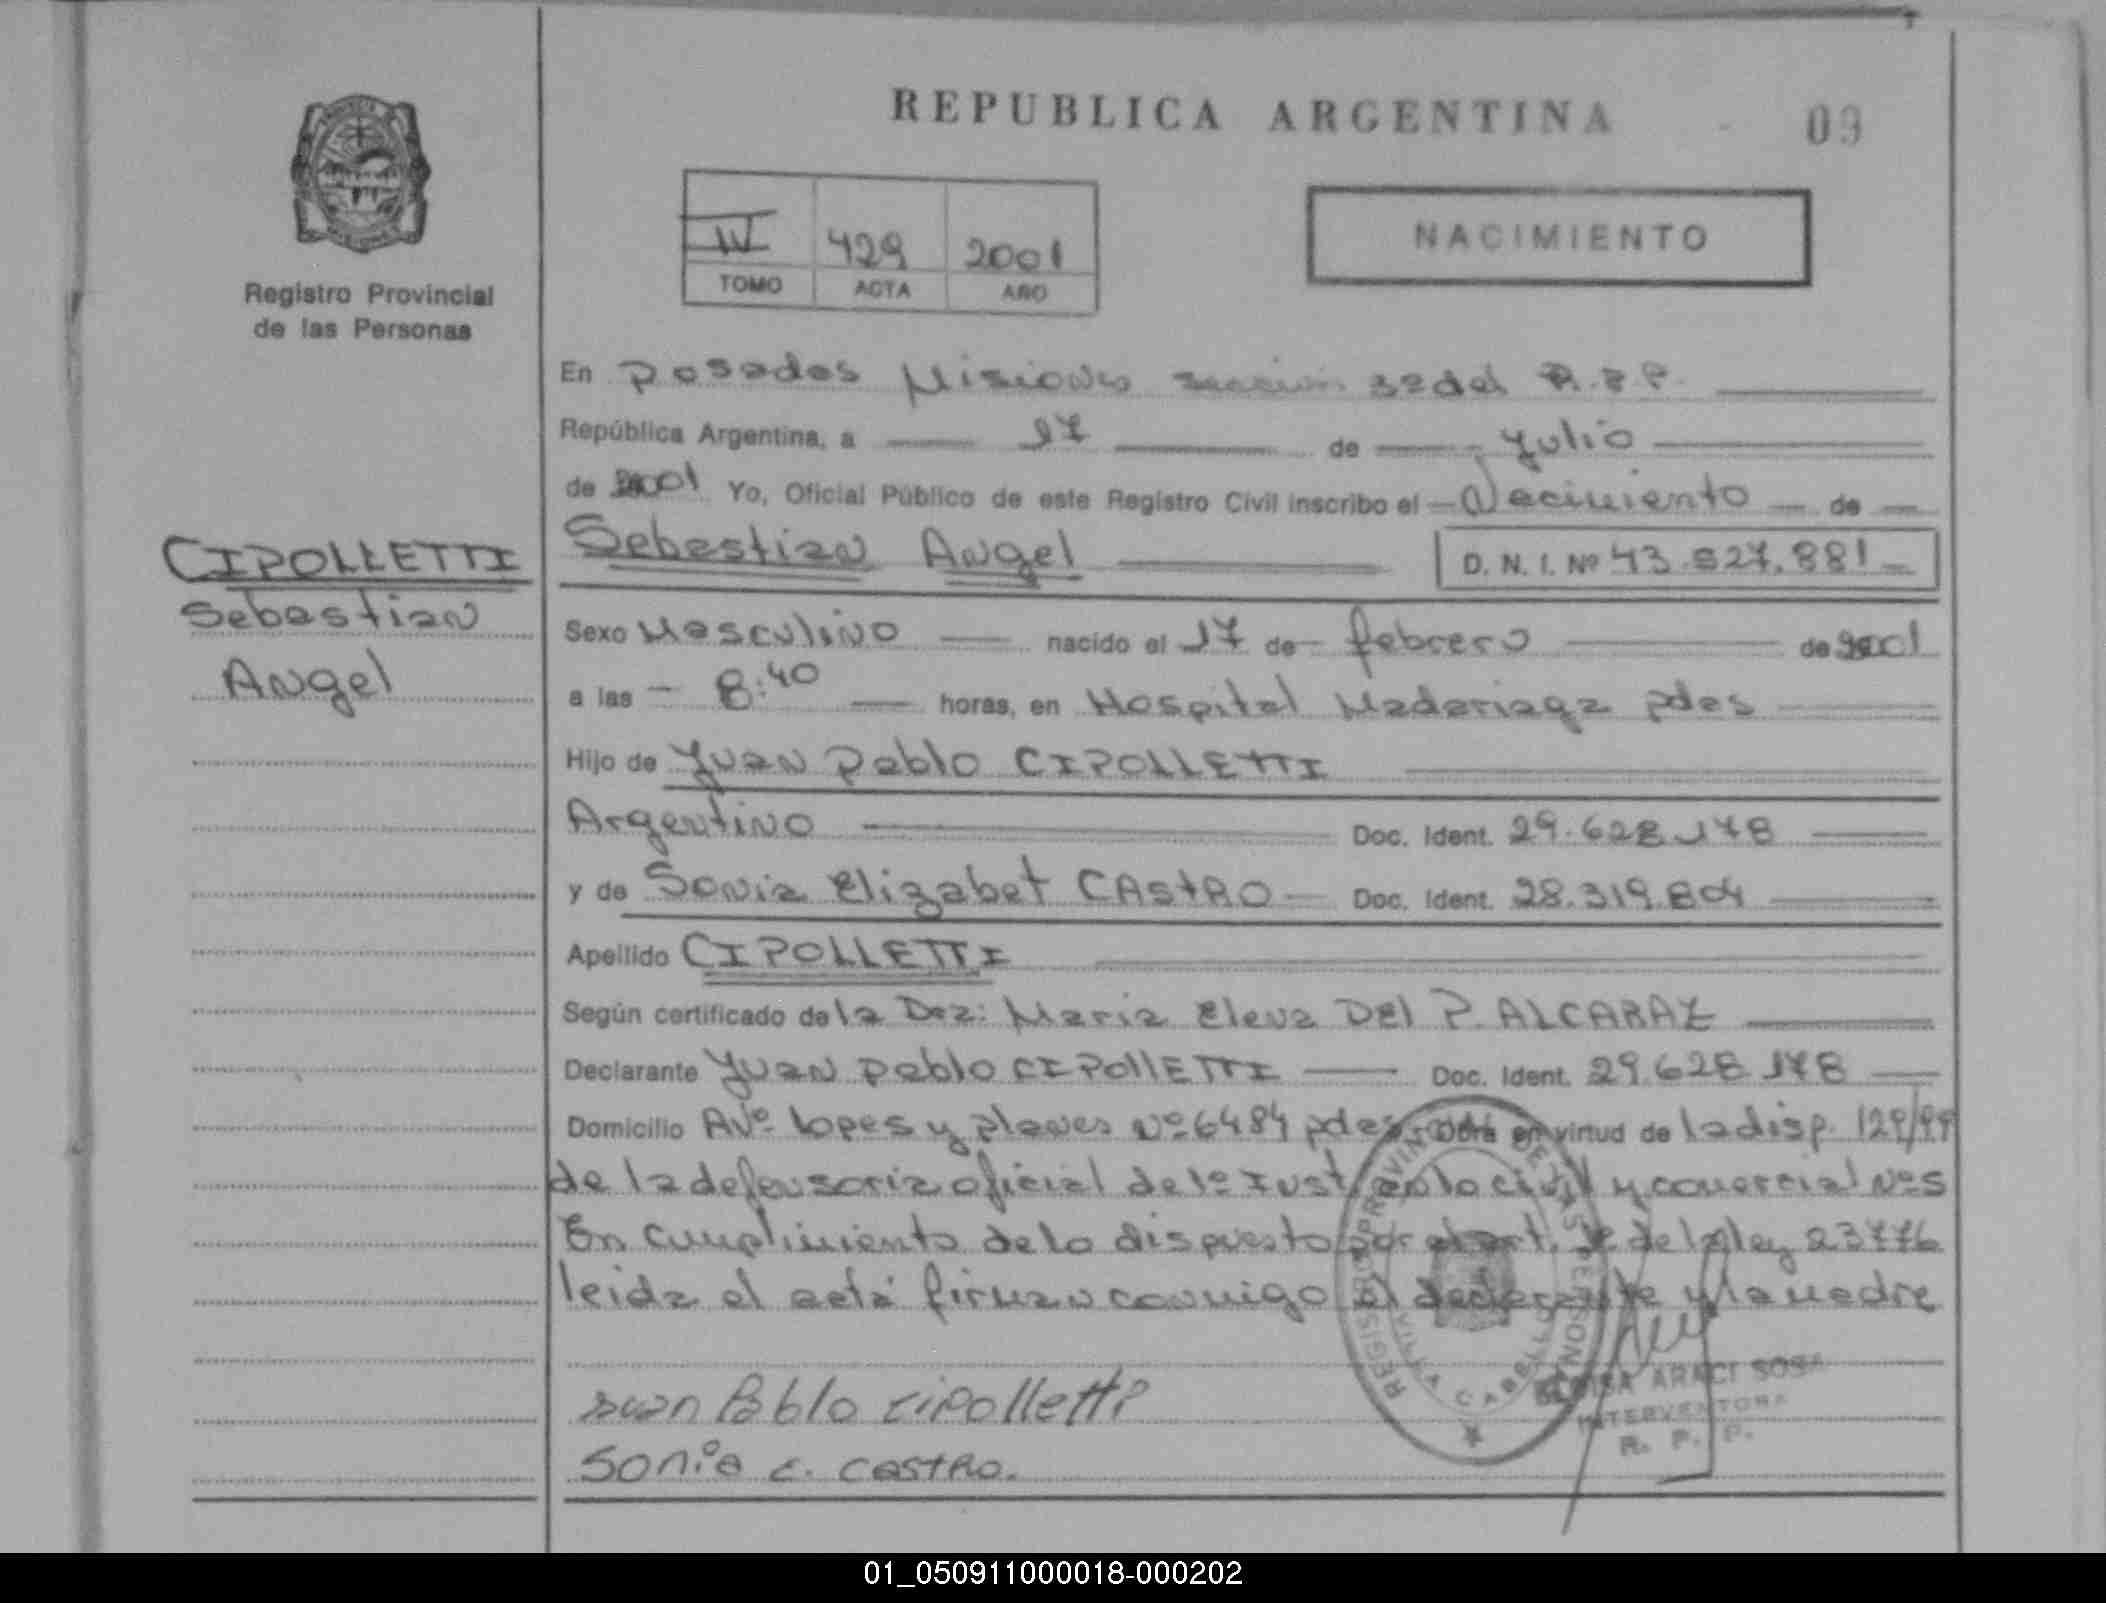 REPUBLICA ARGENTINA
09
IV 429 2001
TOMO ACTA AÑO
NACIMIENTO
Registro Provincial
de las Personas
En Posadas Misiones sección 3º del R.P.P.
República Argentina, a 17 de Julio
de 2001 Yo, Oficial Público de este Registro Civil inscribo el Nacimiento de
Sebastian Angel D. N. I. Nº 43.527.881
CIPOLLETTI
Sebastian
Angel
Sexo Masculino nacido el 17 de febrero de 2001
a las 8:40 horas, en Hospital Madariaga pdas
Hijo de Juan Pablo CIPOLLETTI
Argentino Doc. Ident. 29.628.178
y de Sonia Elizabet CAStRO Doc. Ident. 28.319.804
Apellido CIPOLLETTI
Según certificado de la Dra: Maria Elena DEl P. ALCARAZ
Declarante Juan Pablo CIPOllETTI Doc. Ident. 29.628.178
Domicilio Avº lopes y planes Nº 6484 pdas. Obra en virtud de la disp. 129/99
de la defensoria oficial de 1º Inst. en lo civil y comercial Nº 5
En cumplimiento de lo dispuesto por el art. de la ley 23776
leida el acta firman conmigo el declarante y la madre
Juan Pablo Cipolletti
Sonia E. CastRo.
REGISTRO PROVINCIAL DE LAS PERSONAS
VILLA CABELLO
ARACI SOSA
INTERVENTORA
R. P. P.
01_050911000018-000202